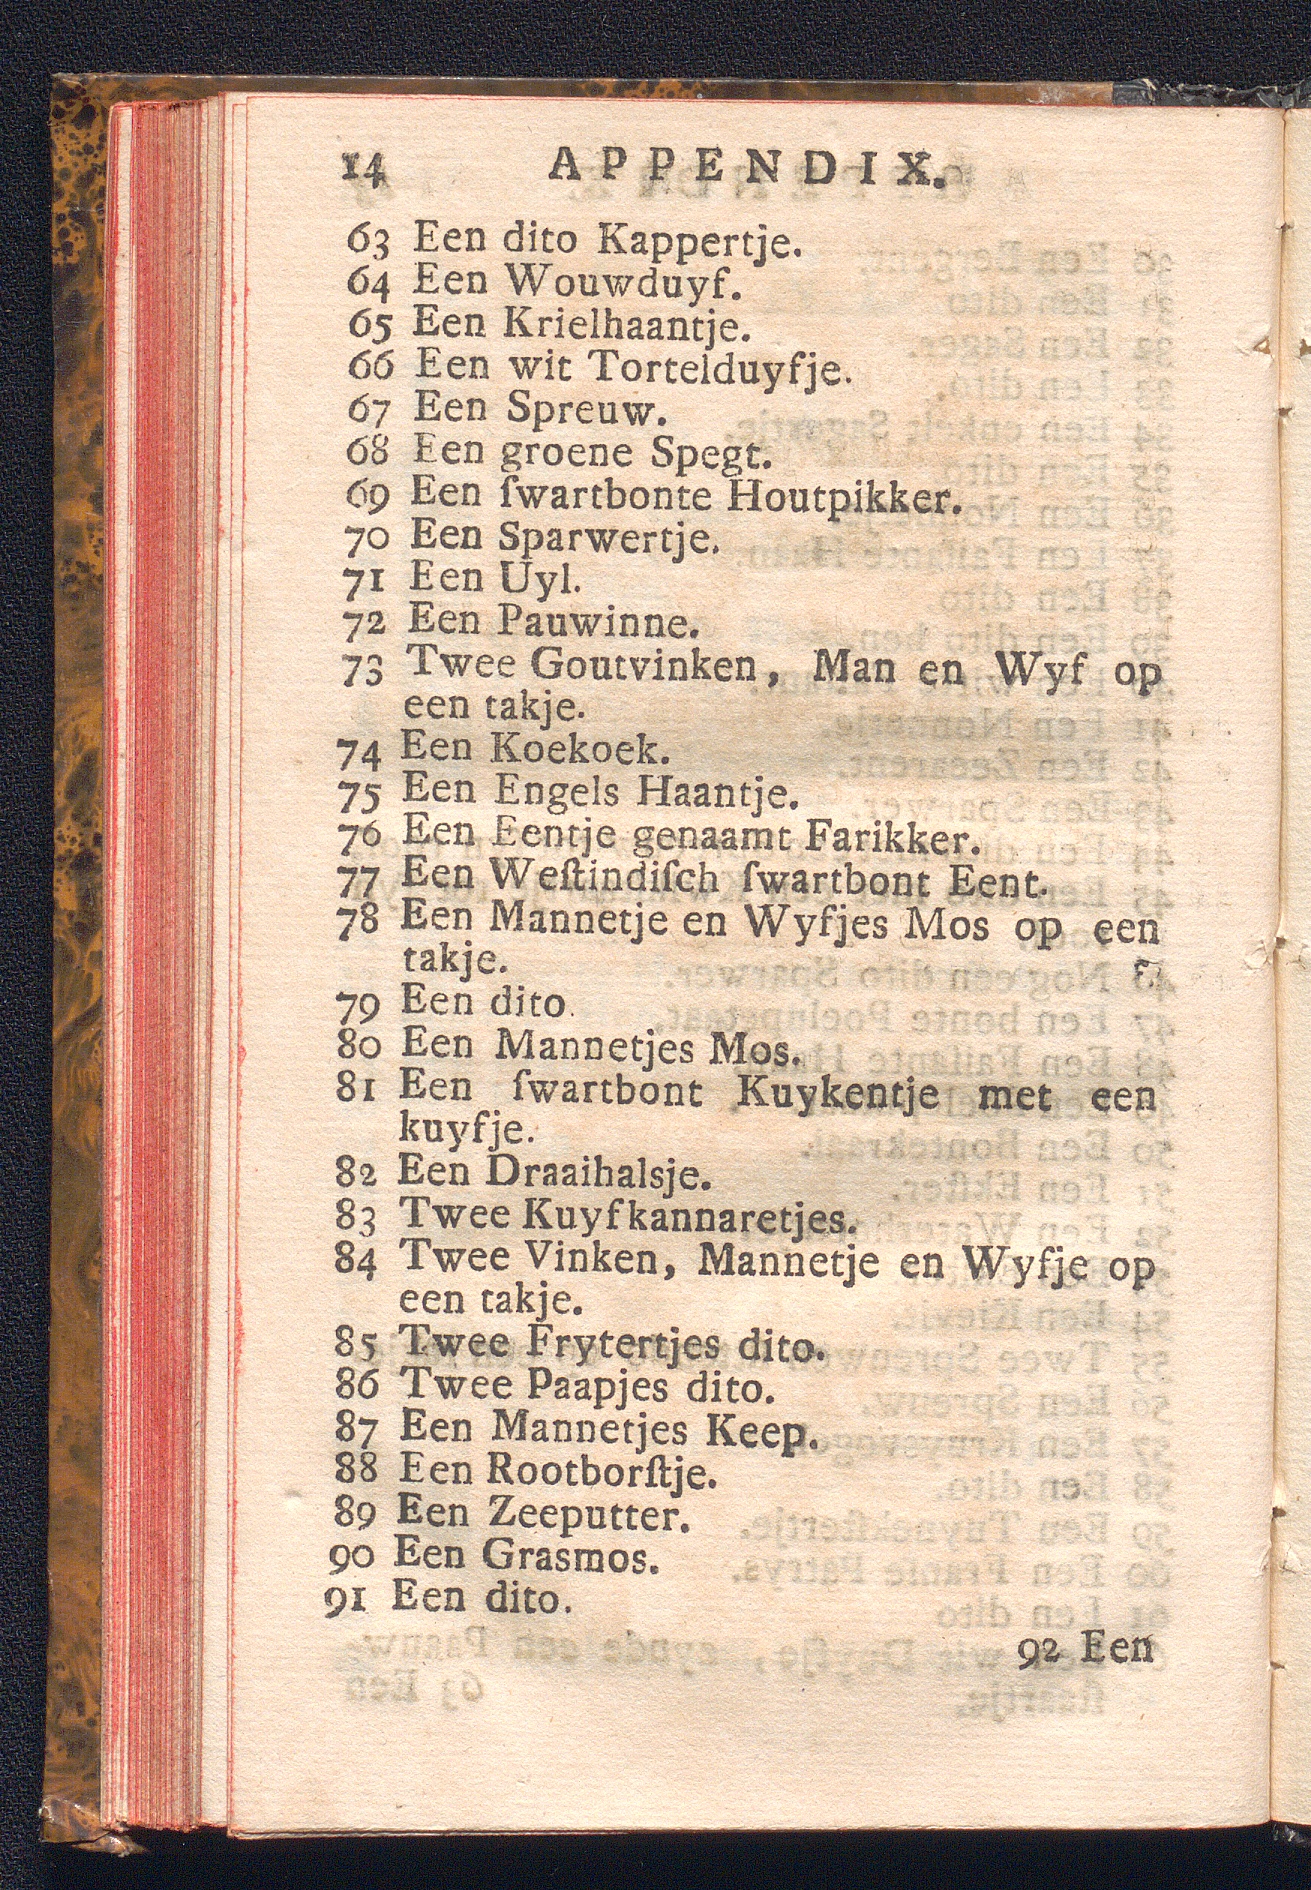 14 APPENDIX.
63 Een dito Kappertje.
64 Een Wouwduyf.
65 Een Krielhaantje.
66 Een wit Tortelduyfje.
67 Een Spreuw.
68 Een groene Spegt.
69 Een ſwartbonte Houtpikker.
70 Een Sparwertje.
71 Een Uyl.
72 Een Pauwinne.
73 Twee Goutvinken, Man en Wyf op
een takje.
74 Een Koekoek.
75 Een Engels Haantje.
76 Een Eentje genaamt Farikker.
77 Een Weſtindiſch ſwartbont Eent.
78 Een Mannetje en Wyfjes Mos op een
takje.
79 Een dito.
80 Een Mannetjes Mos.
81 Een ſwartbont Kuykentje met een
kuyfje.
82 Een Draaihalsje.
83 Twee Kuyfkannaretjes.
84 Twee Vinken, Mannetje en Wyfje op
een takje.
85 Twee Frytertjes dito.
86 Twee Paapjes dito.
87 Een Mannetjes Keep.
88 Een Rootborſtje.
89 Een Zeeputter.
90 Een Grasmos.
91 Een dito.
92 Een